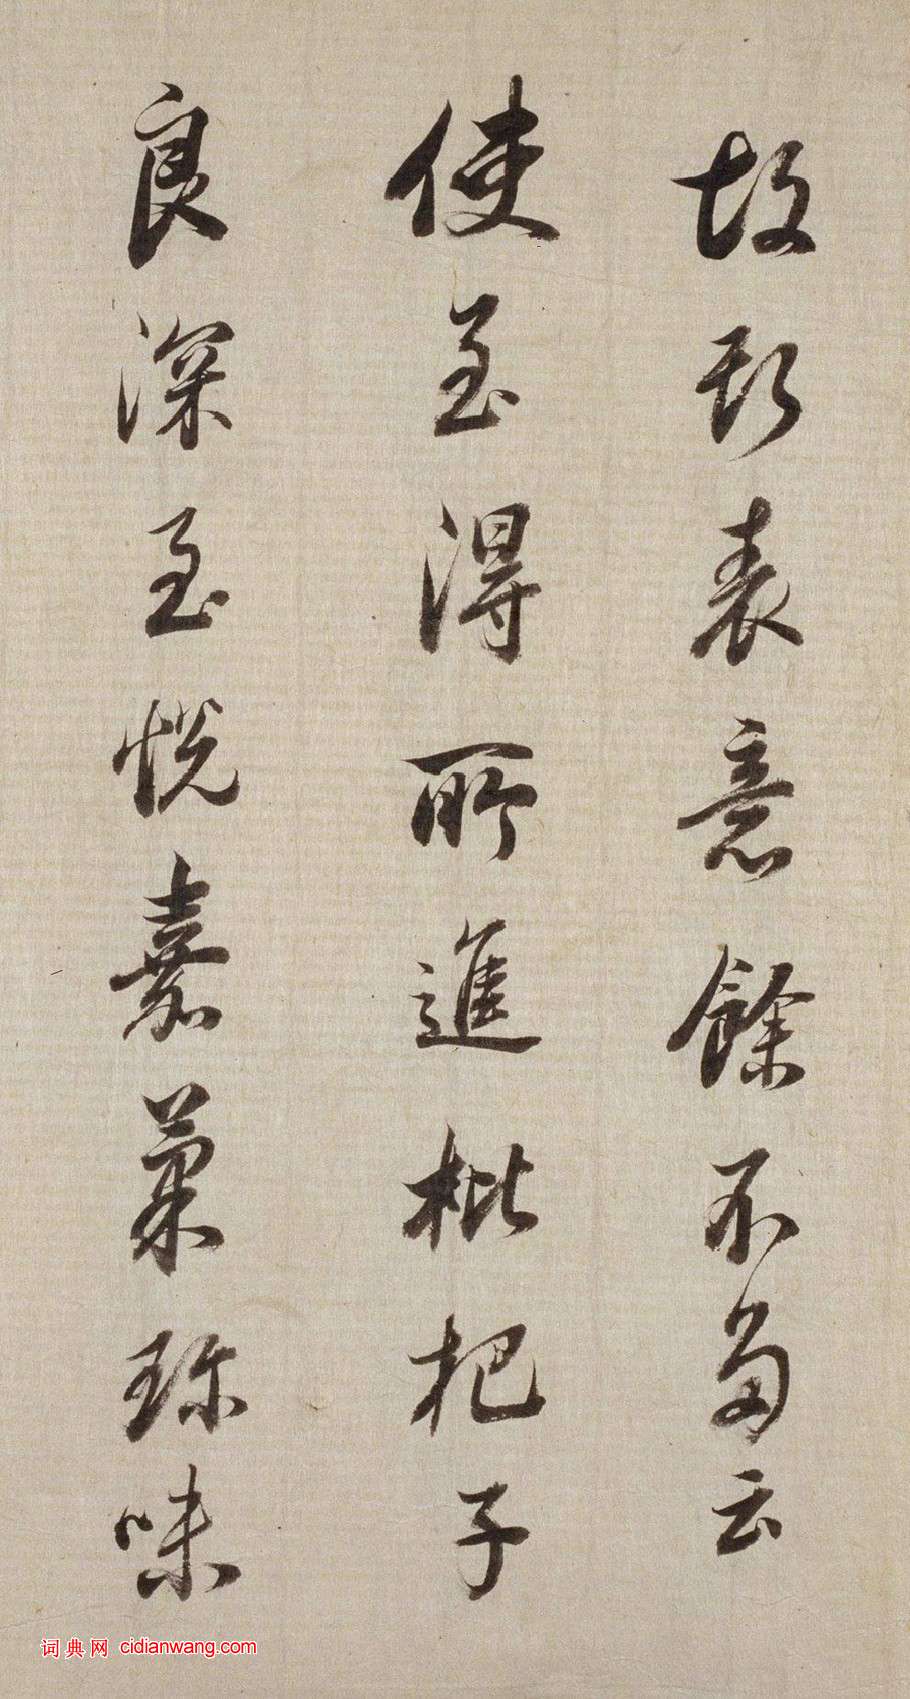 故斯表意餘不多云
使至得所進枇杷子
良深至悦嘉菓珍味
词典网 cidianwang.com